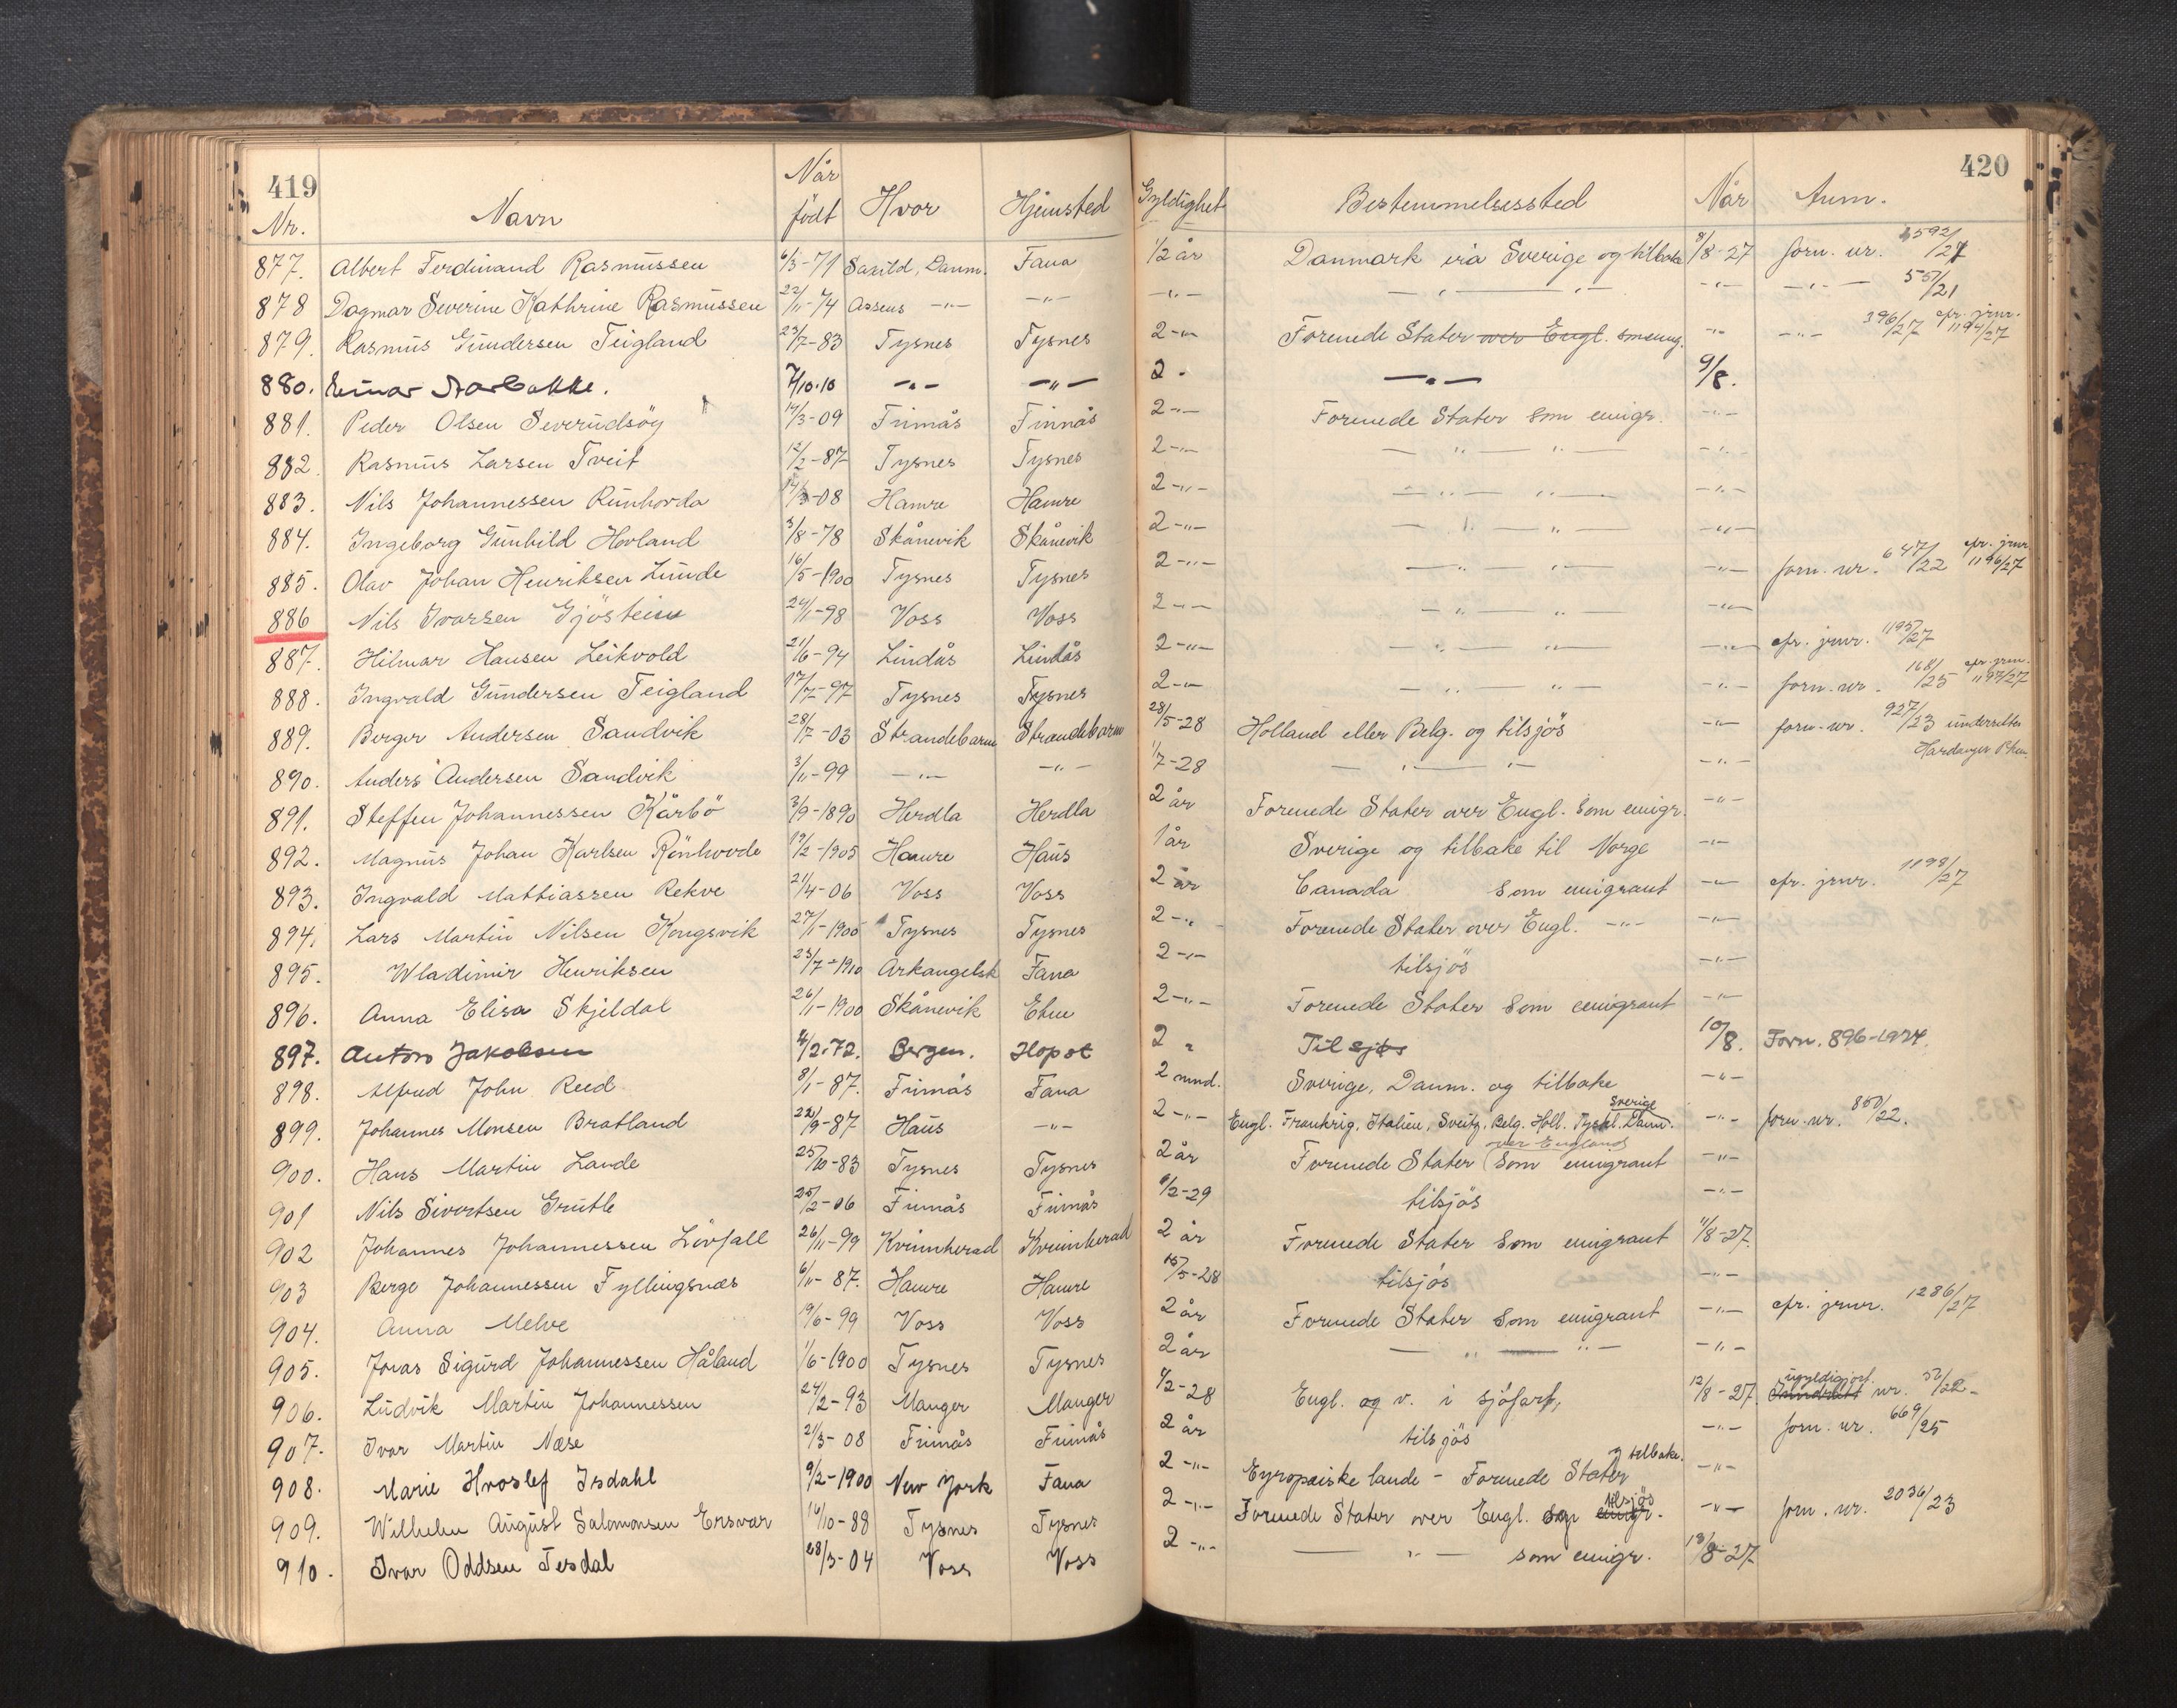 419
420
Nr. Navn Når födt Hvor Hjemsted Gyldighet Bestemmelsessted Når Anm.
877. Albert Ferdinand Rasmussen 6/3-71 Saxild, Danm. Fana 1/2 år Danmark via Sverige og tilbake 8/8-27 forn. nr. 592/27
878 Dagmar Severine Kathrine Rasmussen 22/11-74 Assens -"- -"- -"- -"- -"- -"- -"- 551/21
879. Rasmus Gundersen Teigland 23/7-83 Tysnes Tysnes 2-"- Forenede Stater over Engl. som emig. -"- -"- 396/27 cfr. jrnr. 1194/27
880. Einar Norbakke. 7/10.10 -"- -"- 2 - -"- 9/8.
881. Peder Olsen Söverudsöy 14/3-09 Finnås Finnås 2-"- Forenede Stater som emigr. -"-
882. Rasmus Larsen Tveit 12/2-87 Tysnes Tysnes 2-"- -"- -"- -"-
883. Nils Johannessen Runhovda 14/3-08 Hamre Hamre 2-"- -"- -"- -"-
884. Ingeborg Gunhild Hovland 3/8-78 Skånevik Skånevik 2-"- -"- -"- -"-
885. Olav Johan Henriksen Lunde 16/5-1900 Tysnes Tysnes 2-"- -"- -"- -"- forn. nr. 647/22 cfr. jrnr 1196/27
886 Nils Ivarsen Gjöstein 24/1-98 Voss Voss 2-"- -"- -"- -"-
887. Hilmar Hansen Leikvold 21/6-94 Lindås Lindås 2-"- -"- -"- -"- cfr. jrnr. 1195/27
888. Ingvald Gundersen Teigland 17/7-97 Tysnes Tysnes 2-"- -"- -"- -"- forn. nr. 168/25 cfr. jrnr. 1197/27
889. Berger Andersen Sandvik 28/7-03 Strandebarm Strandebarm 28/5-28 Holland eller Belg. og tilsjös -"- forn. nr. 927/23
Hardanger
890. Anders Andersen Sandvik 3/11-99 -"- -"- 1/7-28 -"- -"- -"-
891. Steffen Johannessen Kårbö 3/9-1890 Herdla Herdla 2 år Forenede Stater over Engl. som emigr. -"-
892. Magnus Johan Karlsen Rönhovde 19/2-1905 Hamre Haus 1 år Sverige og tilbake til Norge -"-
893. Ingvald Mathiassen Rekve 21/4-06 Voss Voss 2 år Canada som emigrant -"- cfr. jrnr. 1198/27
894. Lars Martin Nilsen Kongsvik 27/1-1900 Tysnes Tysnes 2-"- Forenede Stater over Engl. -"- -"-
895. Wladimir Henriksen 23/7-1910 Arkangelsk Fana 2-"- tilsjös -"-
896. Anna Elisa Skjeldal 26/1-1900 Skånevik Etne 2-"- Forenede Stater som emigrant -"-
897. Anton Jakobsen 4/2.72. Bergen. Hopst 2 " Til sjös 10/8. Forn. 896-1924
898. Alfred John Reed 8/1-87. Finnås Fana 2 mnd. Sverige, Danm. og tilbake -"-
899. Johannes Monsen Bratland 22/9-87 Haus -"- 2-"- Engl. Frankrig, Italien, Sveitz, Belg. Holl. Tyskl. Danm. Sverige -"- forn. nr. 850/22.
900. Hans Martin Lande 25/10-83 Tysnes Tysnes 2 år Forenede Stater over England som emigrant -"-
901 Nils Sivertsen Grutle 25/2-06 Finnås Finnås 9/2-29 tilsjös -"-
902 Johannes Johannessen Lövfall 26/11-99 Kvinnherad Kvinnherad 2 år Forenede Stater som emigrant 11/8-27.
903 Berge Johannessen Fyllingsnæs 6/11-87. Hamre Hamre 15/5-28 tilsjös -"-
904. Anna Melve 19/6-99 Voss Voss 2 år Forenede Stater som emigrant -"- cfr. jrnr. 1286/27
905. Jonas Sigurd Johannessen Håland 1/6-1900 Tysnes Tysnes 2 år -"- -"- -"-
906. Ludvik Martin Johannessen 24/2-93 Manger Manger 9/2-28 Engl. og v. i sjöfart, 12/8-27. ugyldigjort. nr. 52/22-
907. Ivar Martin Næse 21/3-08 Finnås Finnås 2 år tilsjös -"- forn. nr. 669/25
908. Marie Hroslef Isdahl 9/2-1900 New York Fana 2-"- Eyropæiske lande - Forenede Stater og tilbake. -"-
909. Wilhelm August Salomonsen Ersvær 16/10-88 Tysnes Tysnes 2-"- Forenede Stater over Engl. og emigr. tilsjös -"- forn. nr. 2036/23
910. Ivar Oddsen Tesdal 28/3-04 Voss Voss 2-"- -"- som emigr. 13/8-27